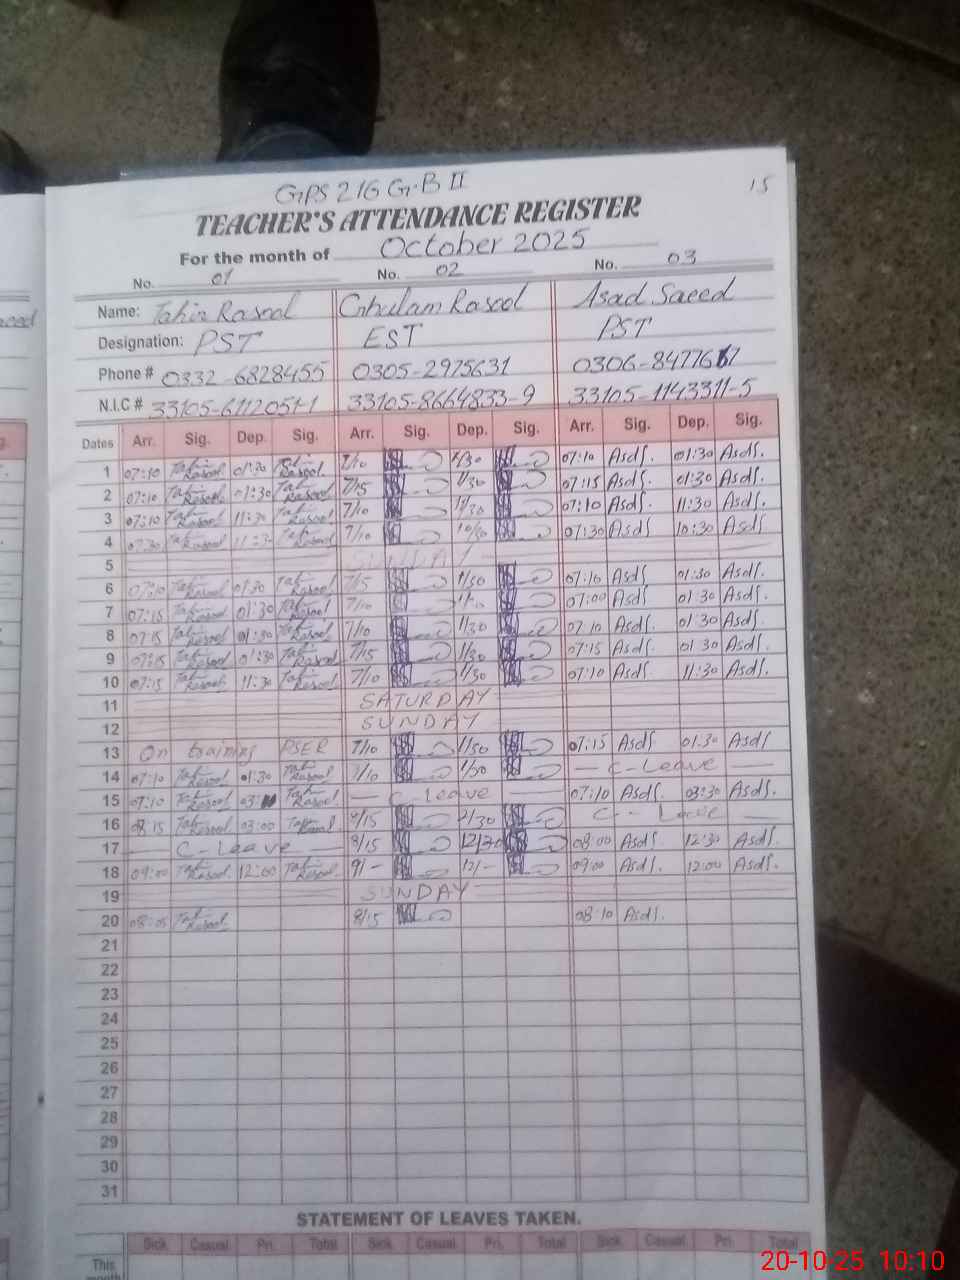 GPS 216 G.B II
15
TEACHER'S ATTENDANCE REGISTER
For the month of October 2025
No. 01 No. 02 No. 03
Name: Tahir Rasool Ghulam Rasool Asad Saeed
Designation: PST EST PST
Phone # 0332-6828455 0305-2975631 0306-8477617
N.I.C # 33105-6112051-1 33105-8664833-9 33105-1143311-5
Dates Arr. Sig. Dep. Sig. Arr. Sig. Dep. Sig. Arr. Sig. Dep. Sig.
1 07:10 Tahir Rasool 01:30 Tahir Rasool 7/10 1/30 07:10 Asdf. 01:30 Asdf.
2 07:10 Tahir Rasool 01:30 Tahir Rasool 7/15 1/30 07:15 Asdf. 01:30 Asdf.
3 07:10 Tahir Rasool 11:30 Tahir Rasool 7/10 11/30 07:10 Asdf. 11:30 Asdf.
4 07:30 Tahir Rasool Tahir Rasool 7/10 10/30 07:30 Asdf 10:30 Asdf
5 SUNDAY
6 07:10 Tahir Rasool 01:30 Tahir Rasool 7/15 1/30 07:10 Asdf. 01:30 Asdf.
7 07:15 Tahir Rasool 01:30 Tahir Rasool 7/10 07:00 Asdf. 01:30 Asdf.
8 07:15 Tahir Rasool 01:30 Tahir Rasool 7/10 1/30 07:10 Asdf. 01:30 Asdf.
9 07:15 Tahir Rasool 01:30 Tahir Rasool 7/15 1/30 07:15 Asdf. 01:30 Asdf.
10 07:15 Tahir Rasool 11:30 Tahir Rasool 7/10 11/30 07:10 Asdf. 11:30 Asdf.
11 SATURDAY
12 SUNDAY
13 On training PSER 7/10 1/30 07:15 Asdf. 01:30 Asdf
14 07:10 Tahir Rasool 01:30 Tahir Rasool 7/10 1/30 C-Leave
15 07:10 Tahir Rasool Tahir Rasool C-Leave 07:10 Asdf. 03:30 Asdf.
16 08:15 Tahir Rasool 03:00 Tahir Rasool 8/15 2/30 C-Leave
17 C-Leave 8/15 12/30 08:00 Asdf. 12:30 Asdf.
18 09:00 Tahir Rasool 12:00 Tahir Rasool 9/- 12/- 09:00 Asdf. 12:00 Asdf.
19 SUNDAY
20 08:05 Tahir Rasool 8/15 08:10 Asdf.
21
22
23
24
25
26
27
28
29
30
31
STATEMENT OF LEAVES TAKEN.
Sick Casual Pri. Total Sick Casual Pri. Total Sick Casual Pri. Total
This
month
20-10-25 10:10